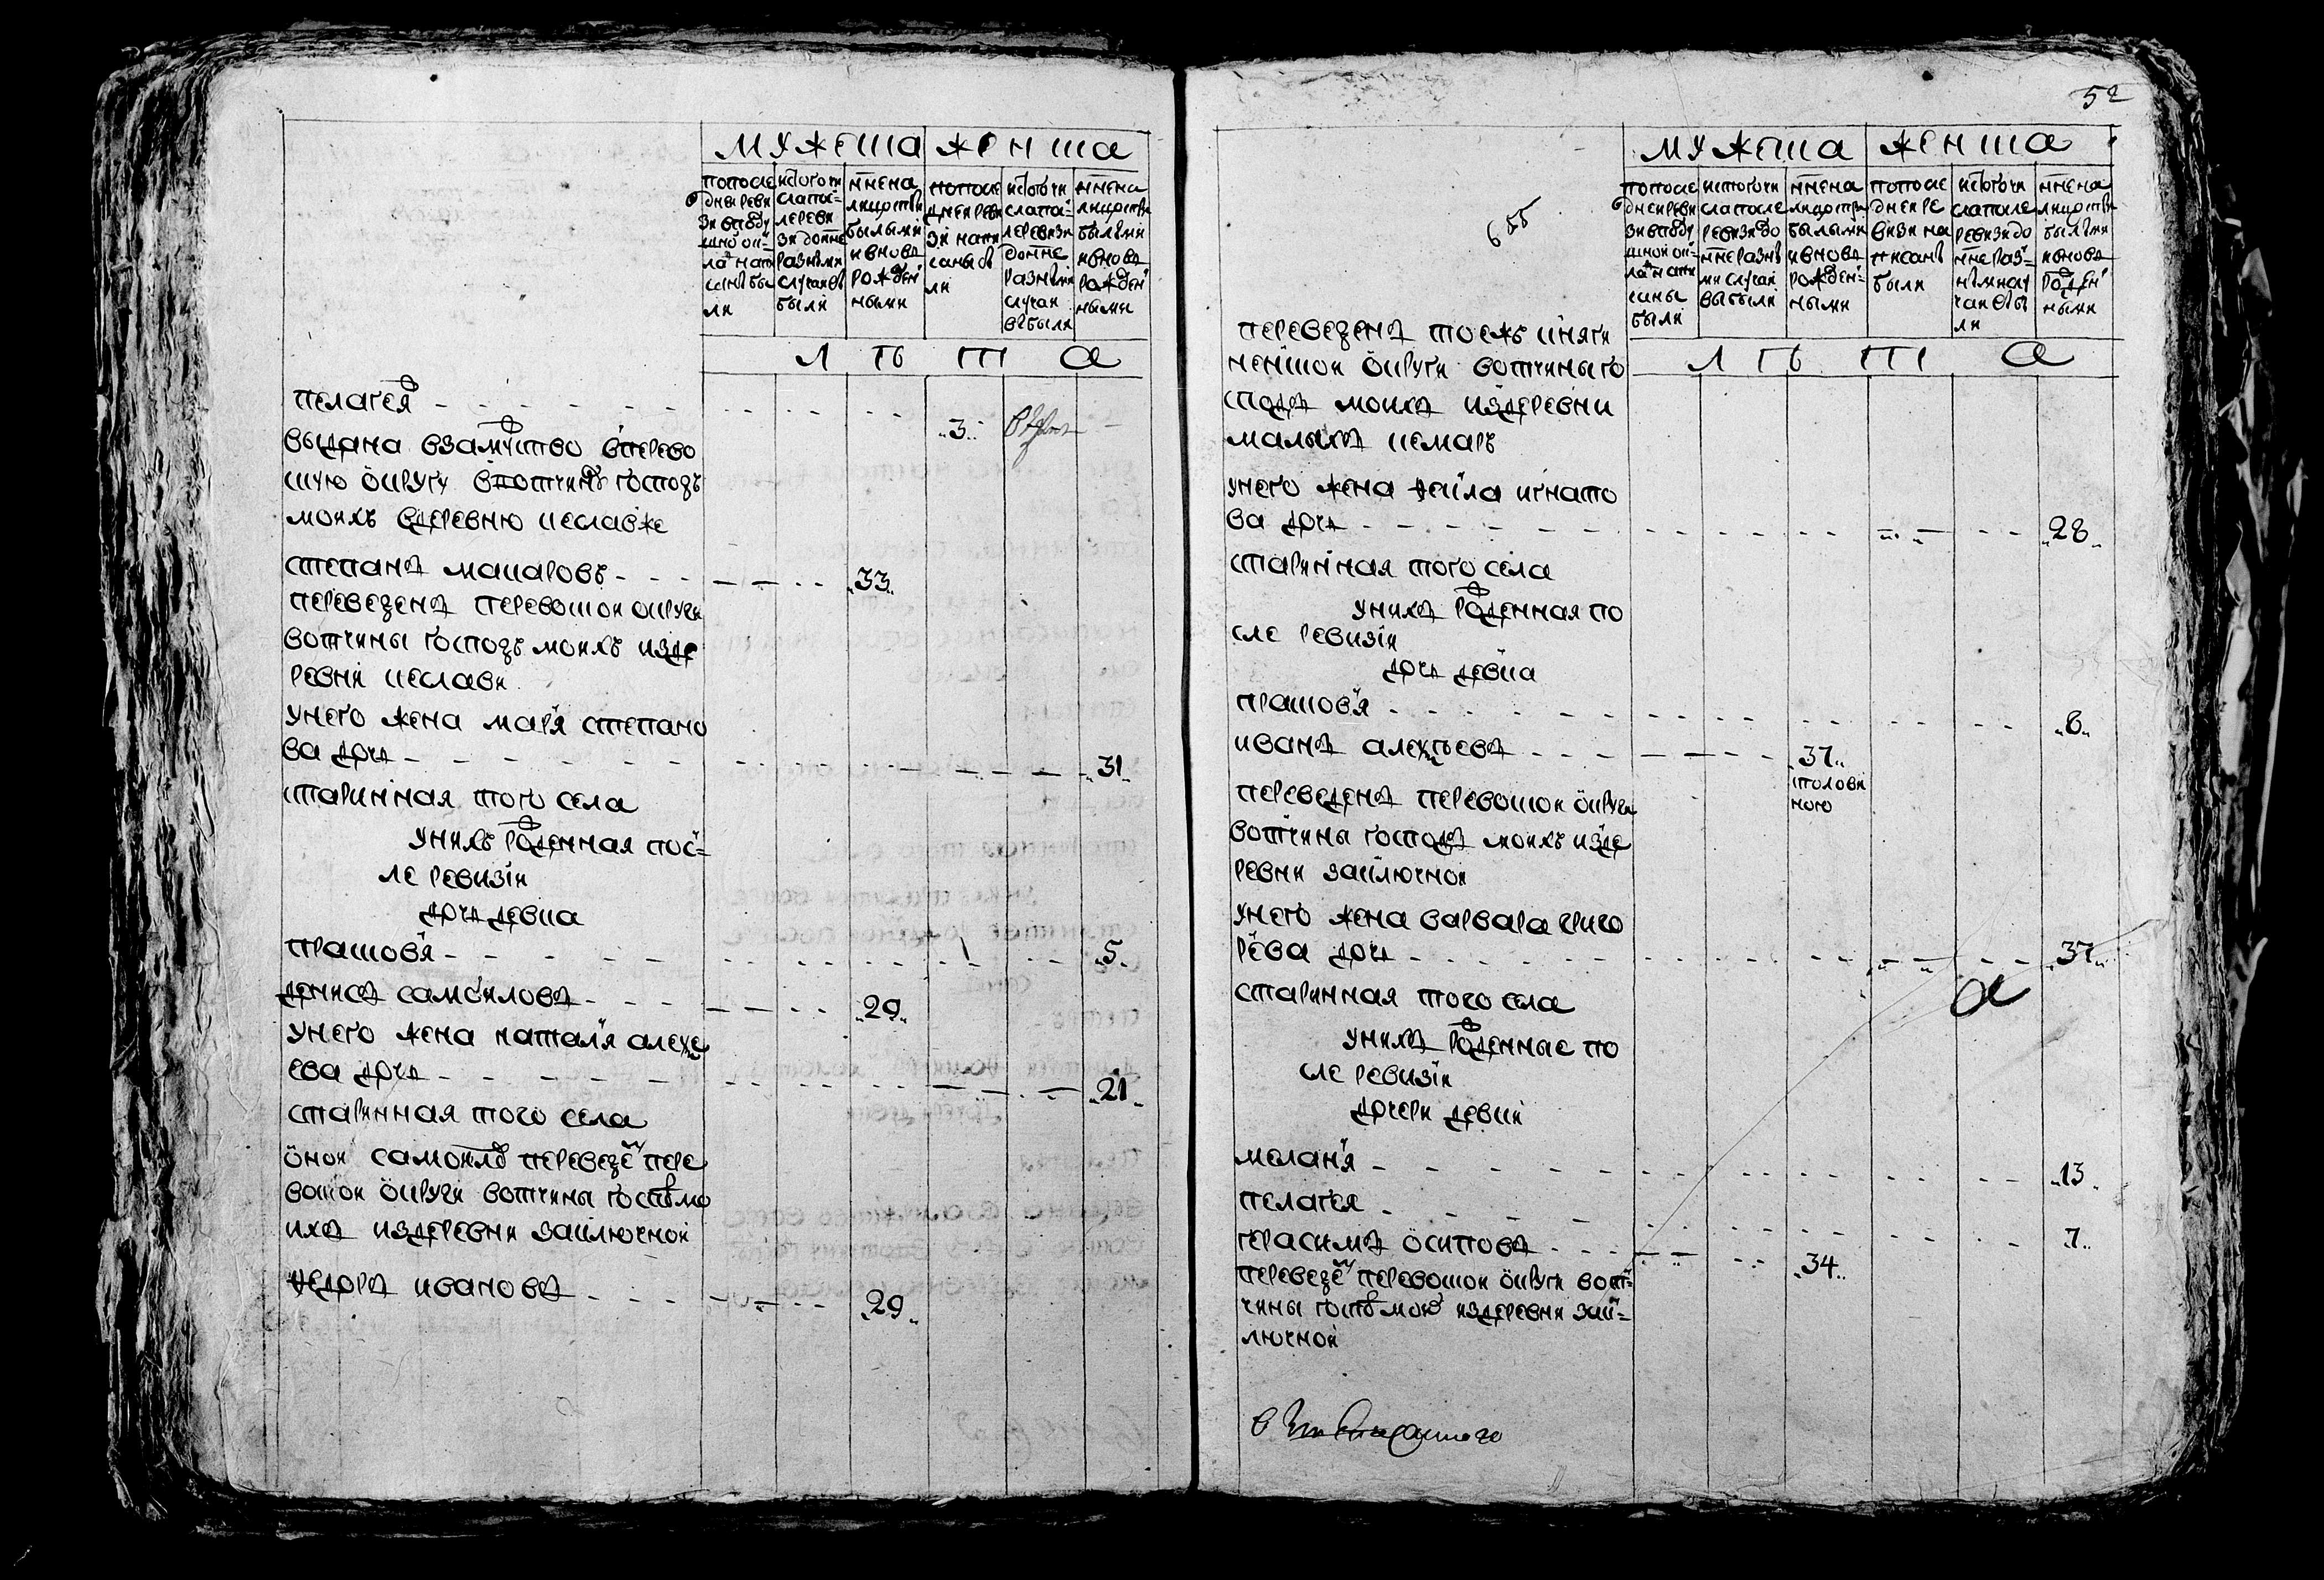 мужеска женска
попосле
дней реви
зии вподу
шной ок=
ладъ напи
саны бы
ли
истого чи
сла по=
сле реви
зи доныне
разными
случаи вы
были
ныне на
лицо при
былыми
и вновъ
рожден
ными
попосле
дней реви
зи напи
саны бы
ли
истого чи
сла по=
сле ревизи
доныне
разными
случаи
выбыли
ныне на
лицо при
былыми
и вновъ
рожден
ными
лѣта
пелагея 3
выдана взамуство вперево
скую округу ввотчину господъ
моихъ вдеревню кеславке
степанъ макаровъ 33
переведенъ перевоской округи
вотчины господъ моихъ изде
ревни кеславки
унего жена марья степано
ва дочь 31
старинная того села
унихъ рожденная пос=
ле ревизiи
дочь девка
прасковья 5
денисъ самойловъ 29
унего жена наталья алексе
ева дочь 21
старинная того села
оной самойловъ переведен пере
воской округи вотчины госпдъ мо
ихъ издеревни заключной
федоръ ивановъ 29
52
655
мужеска женска
попосле
дней реви
зи вподу
шной ок
ладъ напи
саны
были
истого чи
сла после
ревизи до
ныне разны
ми случаи
выбыли
ныне на
лицо при
былыми
и вновъ
рожден=
ными
попосле
дней ре
визи на
писаны
были
истого чи
сла после
ревизи до
ныне раз=
ными слу
чаи выбы
ли
ныне на
лицо при
былыми
и вновъ
рожден
ными
лѣта
переведенъ тоежъ княги
ненской округи вотчины го
сподъ моихъ издеревни
малыхъ кемаръ
унего жена фекла игнато
ва дочь 28
старинная того села
унихъ рожденная по
сле ревизiи
дочь девка
прасковья 6
иванъ алексѣевъ 37
споlови
ного
переведенъ перевоской округи
вотчины господъ моихъ изде
ревни заключной
унего жена варвара григо
рьева дочь 37
старинная того села
унихъ рожденные по
сле ревизiи
дочери девки
меланья 13
пелагея 7
герасимъ осиповъ 34
переведен перевоской округи вот=
чины госпдъ моихъ издеревни зак=
лючной